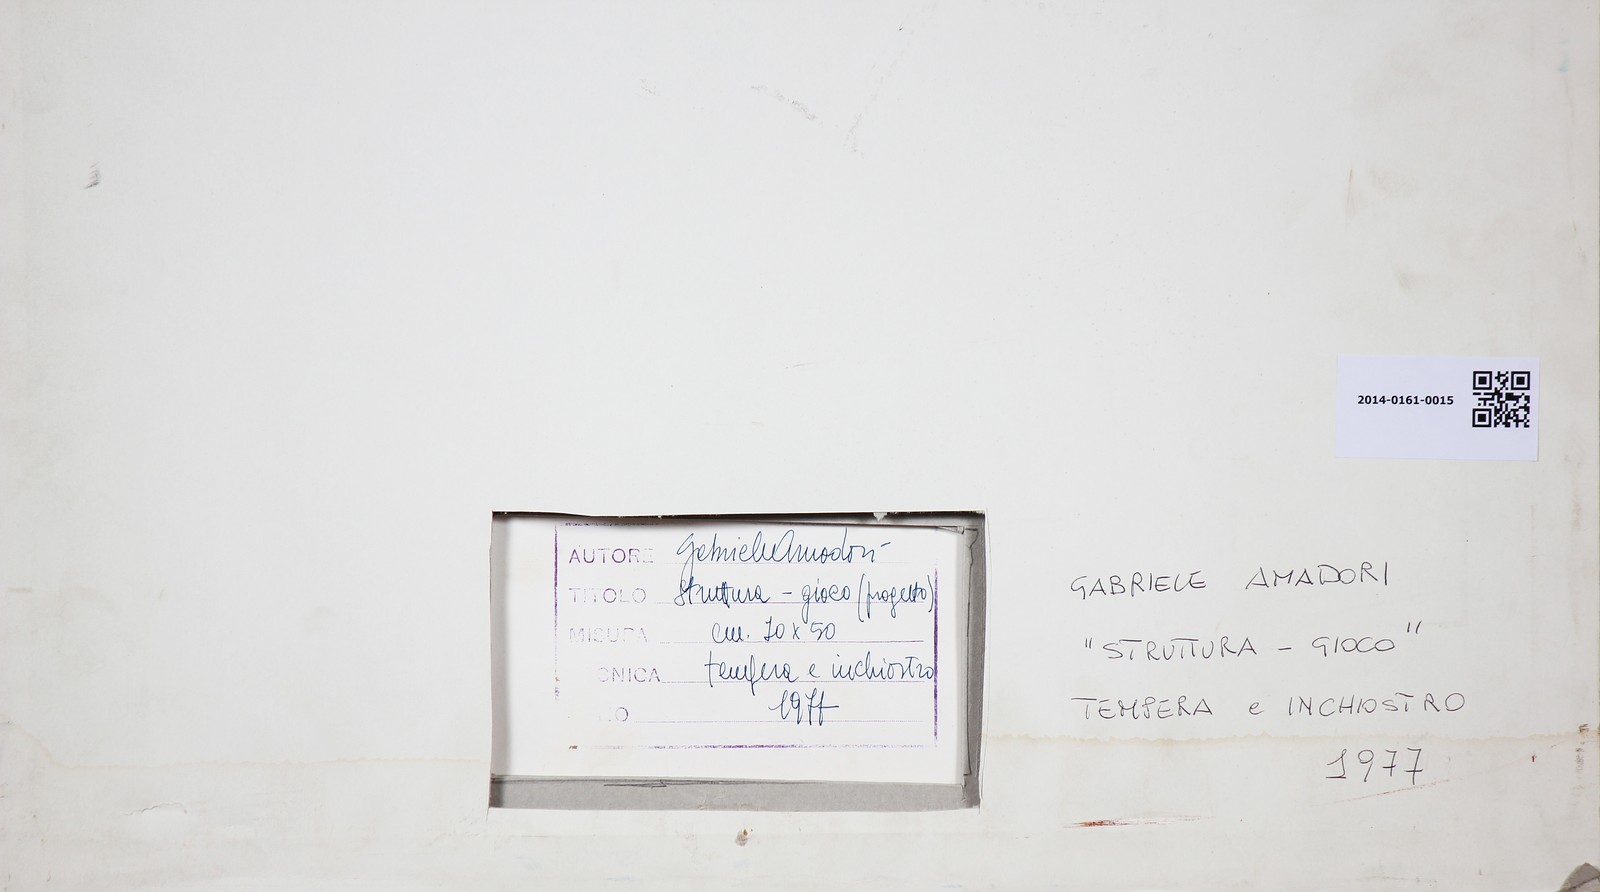 AUTORE Gabriele Amadori
TITOLO struttura - gioco (progetto)
MISURA cm. 70 x 50
ONICA tempera e inchiostro
O 1977
2014-0161-0015
GABRIELE AMADORI
"STRUTTURA - GIOCO"
TEMPERA e INCHIOSTRO
1977